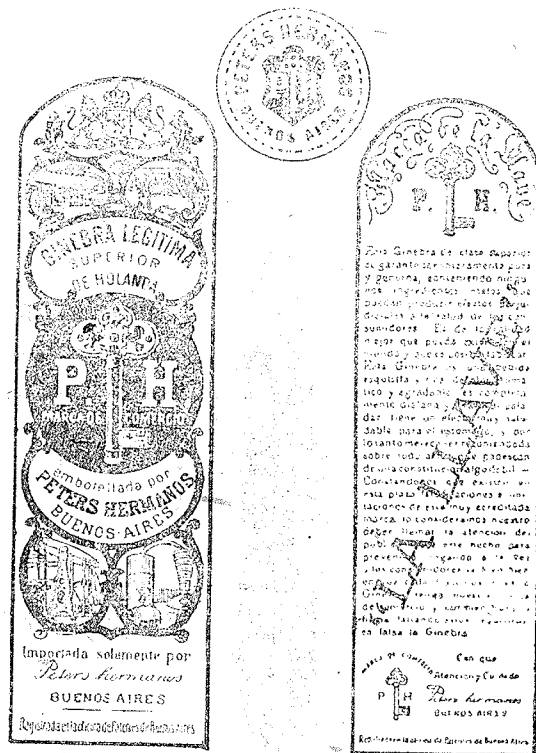 PETERS HERMANOS
BUENOS AIRES
GINEBRA LEGITIMA
SUPERIOR
DE HOLANDA
P. H.
MARCA DE COMERCIO
embotellada por
PETERS HERMANOS
BUENOS-AIRES
Importada solamente por
Peters hermanos
BUENOS AIRES
Registrada en la oficina de Patentes de Buenos Aires
Marca de la Llave
P. H.
Esta Ginebra de clase superior
se garante ser enteramente pura
y genuina, conteniendo ningu-
nos ingredientes malos que
puedan producir efectos perju-
diciales a la salud de los con-
sumidores. Es de la calidad
mejor que puede
mundo y
Esta Ginebra es una bebida
esquisita y rica
tico y agradable, es completa-
mente diafana y
dar tiene un efecto muy salu-
dable para el estomago, y por
lo tanto merece ser recomendada
sobre todo a los que padescan
de una constitucion algo debil. —
Constandonos que existen en
esta plaza falsificaciones e imi-
taciones de esta muy acreditada
marca, lo consideramos nuestro
deber llamar la atencion del
publico a este hecho para
a la vez
a los consumidores
Ginebra tenga nuestra
de comercio y
firma faltando estos
es falsa la Ginebra
MARCA DE COMERCIO
P H
Con que
Atencion y Cuidado
Peters hermanos
BUENOS AIRES
Registrada en la oficina de Patentes de Buenos Aires